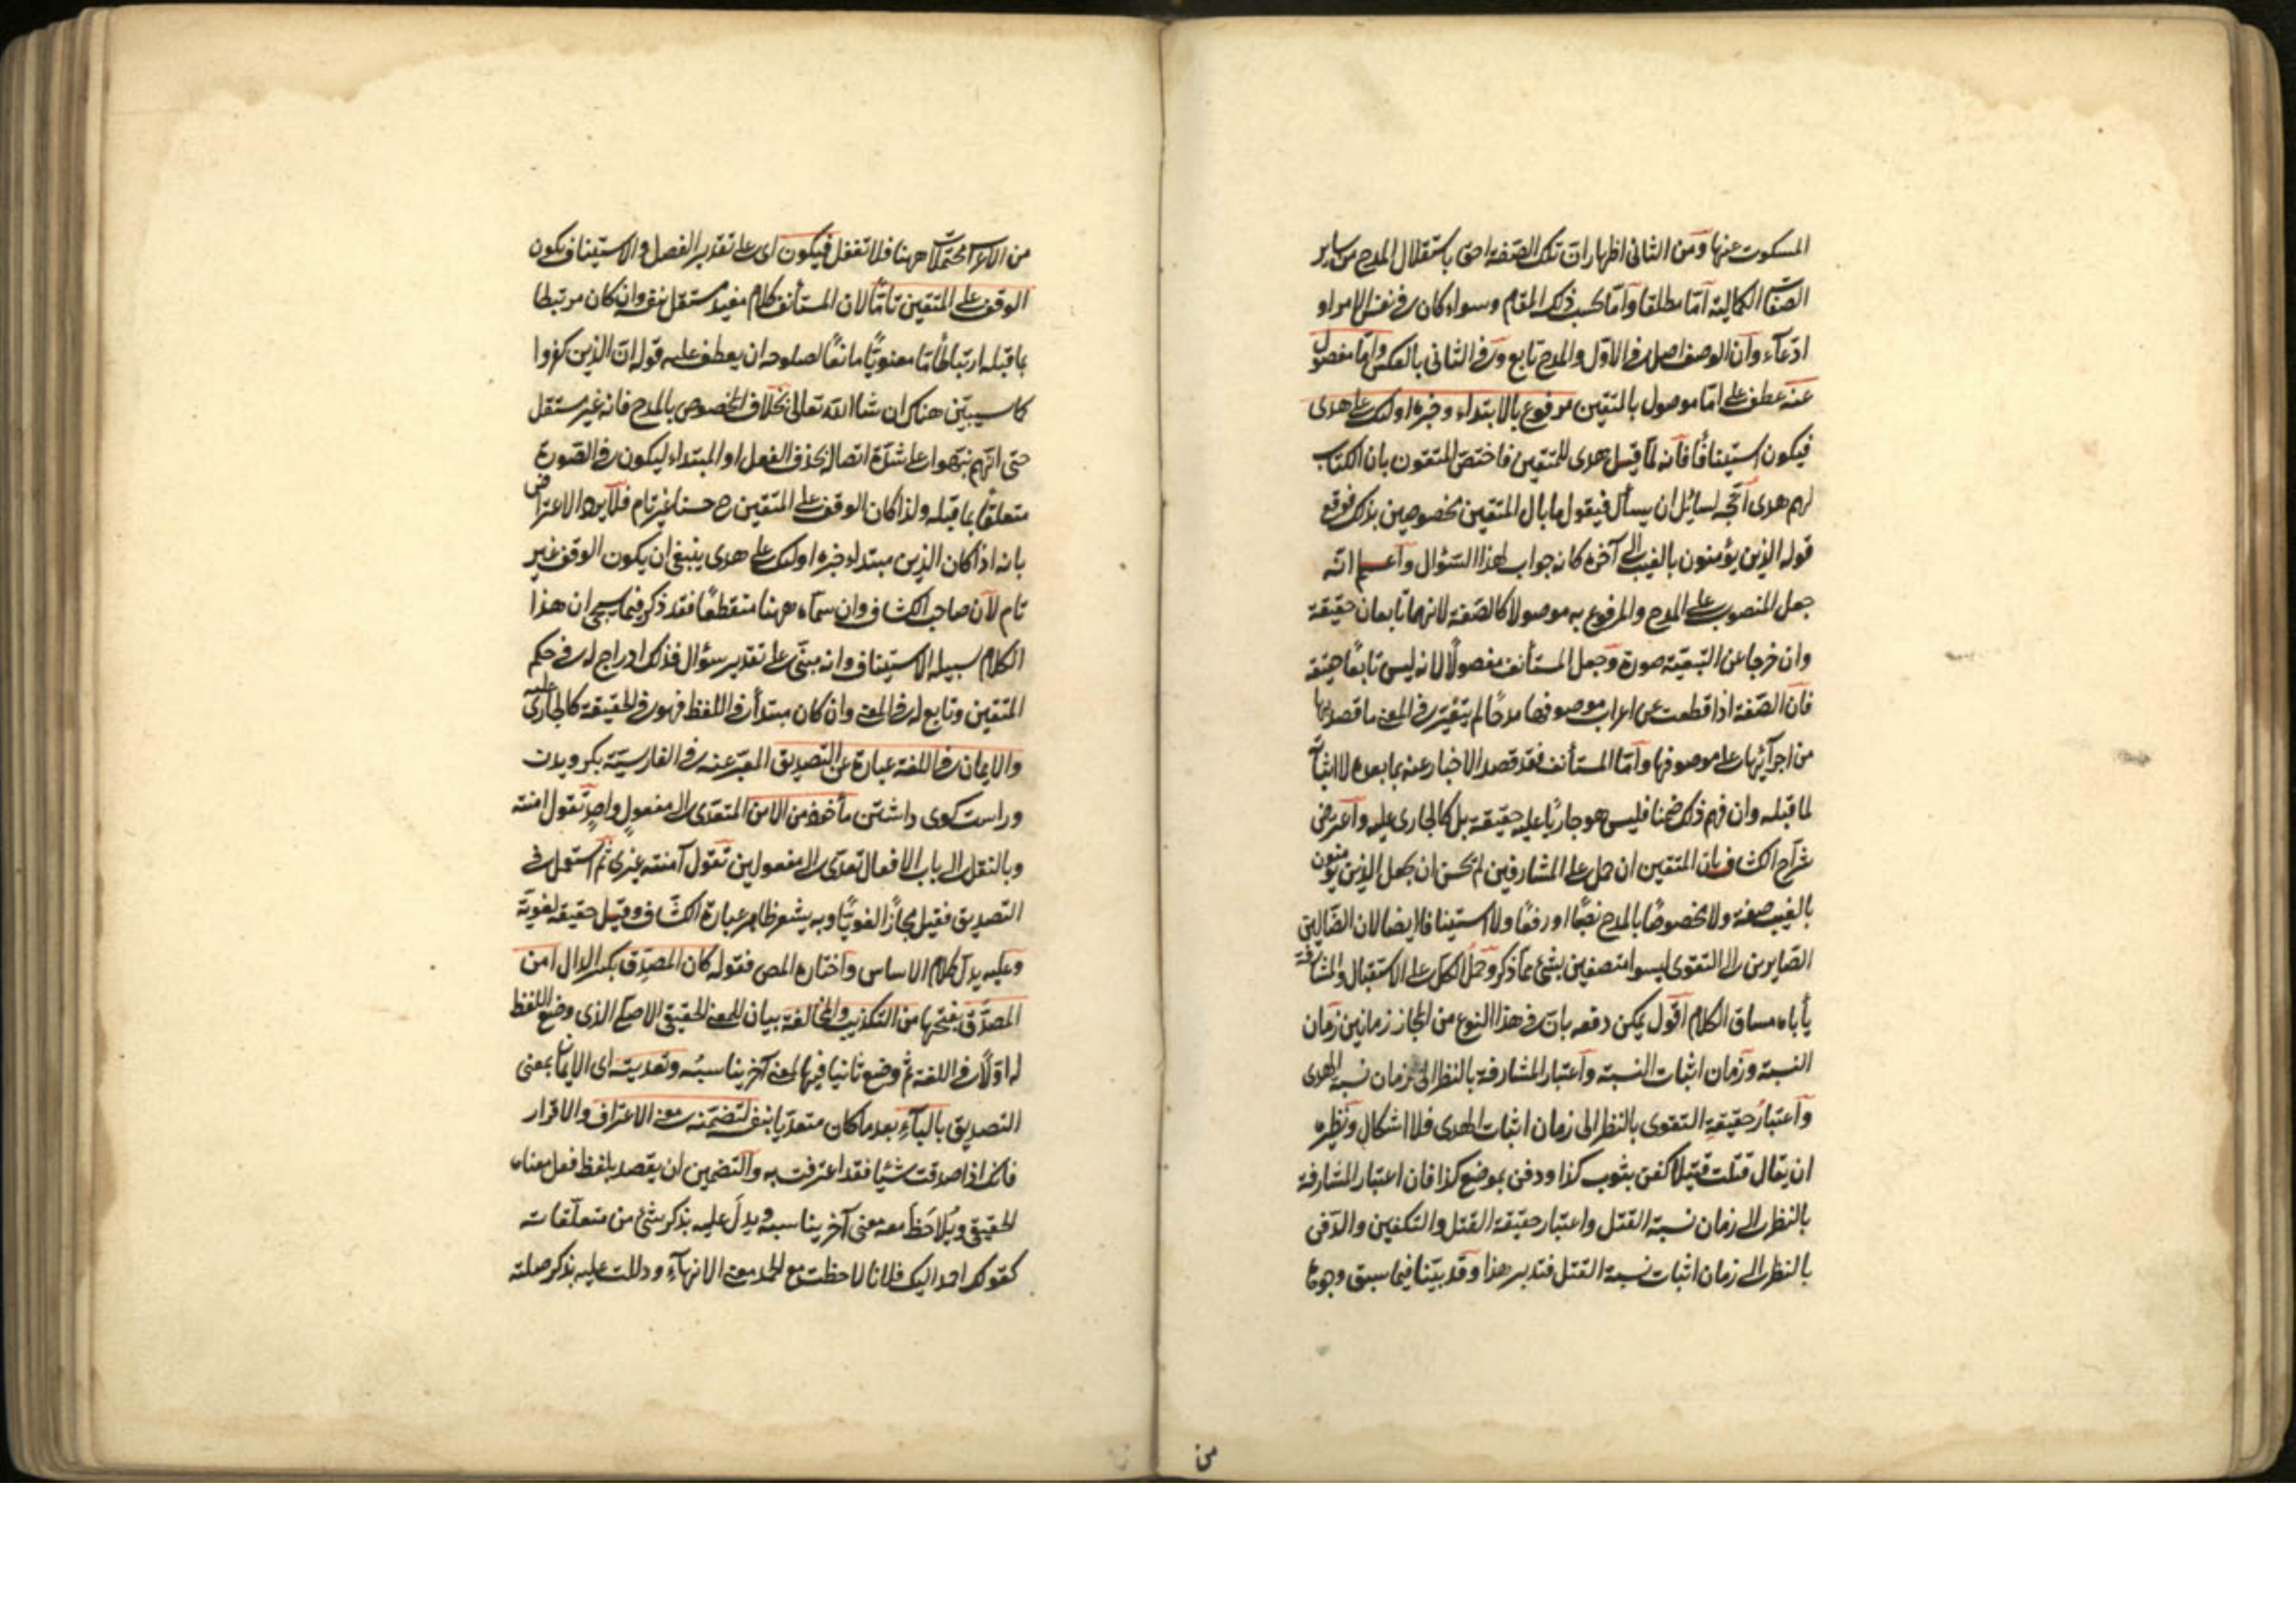 المسكوت عنها ومن الثانى اظهار ان تلك الصفة احق باستقلال المدح من ساير
الصفات الكمالية امّا مطلقا وامّا بحسب ذلك المقام وسواء كان فى نفس الامر او
ادّعاء وان الوصف اصل فى الاوّل والمدح تابع وفى الثانى بالعكس وامّا مفصول
عنه عطف على امّا موصول بالمتقين مرفوع بالابتداء وخبره اولئك على هدى
فيكون استينافًا فانه لمّا قيل هدى للمتقين فاختصّ المتقون بان الكتاب
لهم هدى اتّجه لسائل ان يسأل فيقول ما بال المتقين مخصوصين بذلك فوقع
قوله الذين يؤمنون بالغيب الى آخره كانه جواب لهذا السّؤال واعلم انّه
جعل المنصوب على المدح والمرفوع به موصولا كالصّفة لانهما تابعان حقيقة
وان خرجا عن التبعيّة صورة وجعل المستأنف مفصولًا لانه ليس تابعًا حقيقة
فان الصّفة اذا قطعت عن اعراب موصوفها مدحًا لم يتغيّر فى المعنى ما قصد بها
من اجرائها على موصوفها وامّا المستأنف فقد قصد الاخبار عنه بما بعده لا اثباته
لما قبله وان فهم ذلك ضمنا فليس هو جاريًا عليه حقيقة بل كالجارى عليه واعترض
شرّاح الكشاف بان المتقين ان حمل على المشارفين لم يحسن ان يجعل الذين يؤمنون
بالغيب صفة ولا مخصوصًا بالمدح نصبًا او رفعًا ولا استينافا ايضا لان الضّالّين
الصّايرين الى التقوى ليسوا متصفين بشئ ممّا ذكر وحمل الكلّ على الاستقبال والمشارفة
يأباه مساق الكلام اقول يمكن دفعه بان فى هذا النوع من المجاز زمانين زمان
النسبة وزمان اثبات النسبة واعتبار المشارفة بالنظر الى زمان نسبة الهدى
واعتبار حقيقة التقوى بالنظر الى زمان اثبات الهدى فلا اشكال ونظيره
ان يقال قتلت قتيلا كفن بثوب كذا ودفن بموضع كذا فان اعتبار المشارفة
بالنظر الى زمان نسبة القتل واعتبار حقيقة القتل والتكفين والدّفن
بالنظر الى زمان اثبات نسبة القتل فتدبر هذا وقد بيّنا فيما سبق وجوها
من
من الاعراب محتملات ههنا فلا تغفل فيكون اى على تقدير الفصل والاستيناف يكون
الوقف على المتقين تامّا لان المستأنف كلام مفيد مستقل بنفسه وان كان مرتبطا
بما قبله ارتباطًا تامّا معنويًّا مانعًا لصلوحه ان يعطف عليه قوله ان الذين كفروا
كما سيبيّن هناك ان شاء الله تعالى بخلاف المخصوص بالمدح فانه غير مستقل
حتى انهم نبّهوا على شدّة اتصاله بحذف الفعل او المبتداء ليكون فى الصّورة
متعلّقًا بما قبله ولذا كان الوقف على المتقين ح حسنا غير تام فلا يرد الاعتراض
بانه اذا كان الذين مبتداء خبره اولئك على هدى ينبغى ان يكون الوقف غير
تام لان صاحب الكشاف وان سمّاه ههنا منقطعًا فقد ذكر فيما سيجئ ان هذا
الكلام سبيله الاستيناف وانه مبنىّ على تقدير سؤال فذلك ادراج له فى حكم
المتقين وتابع له فى المعنى وان كان مبتدأ فى اللفظ فهو فى الحقيقة كالجارى عليه
والايمان فى اللغة عبارة عن التصديق المعبّر عنه فى الفارسيّة بكرويدن
وراست كوى داشتن مأخوذ من الامن المتعدّى الى مفعول واحد تقول امنته
وبالنقل الى باب الافعال تعدّى الى مفعولين تقول آمنته غيرى ثم استعمل فى
التصديق فقيل مجازًا لغويًّا وبه يشعر ظاهر عبارة الكشّاف وقيل حقيقة لغويّة
وعليه يدلّ كلام الاساس واختاره المص فقوله كان المصدّق بكسر الدال امن
المصدَّق بفتحها من التكذيب والمخالفة بيان للمعنى الحقيقى الاصلى الذى وضع اللفظ
له اوّلًا فى اللغة ثم وضع ثانيا فيها لمعنى آخر يناسبه وتعديته اى الايمان بمعنى
التصديق بالباء بعد ما كان متعدّيا بنفسه لتضمّنه معنى الاعتراف والاقرار
فانك اذا صدقت شيئا فقد اعترفت به والتضمين ان يقصد بلفظ فعل معناه
الحقيقى ويُلاحَظ معه معنى آخر يناسبه ويدلّ عليه بذكر شئ من متعلّقاته
كقولك احمد اليك فلانا لاحظت مع الحمد معنى الانهاء ودللت عليه بذكر صلته